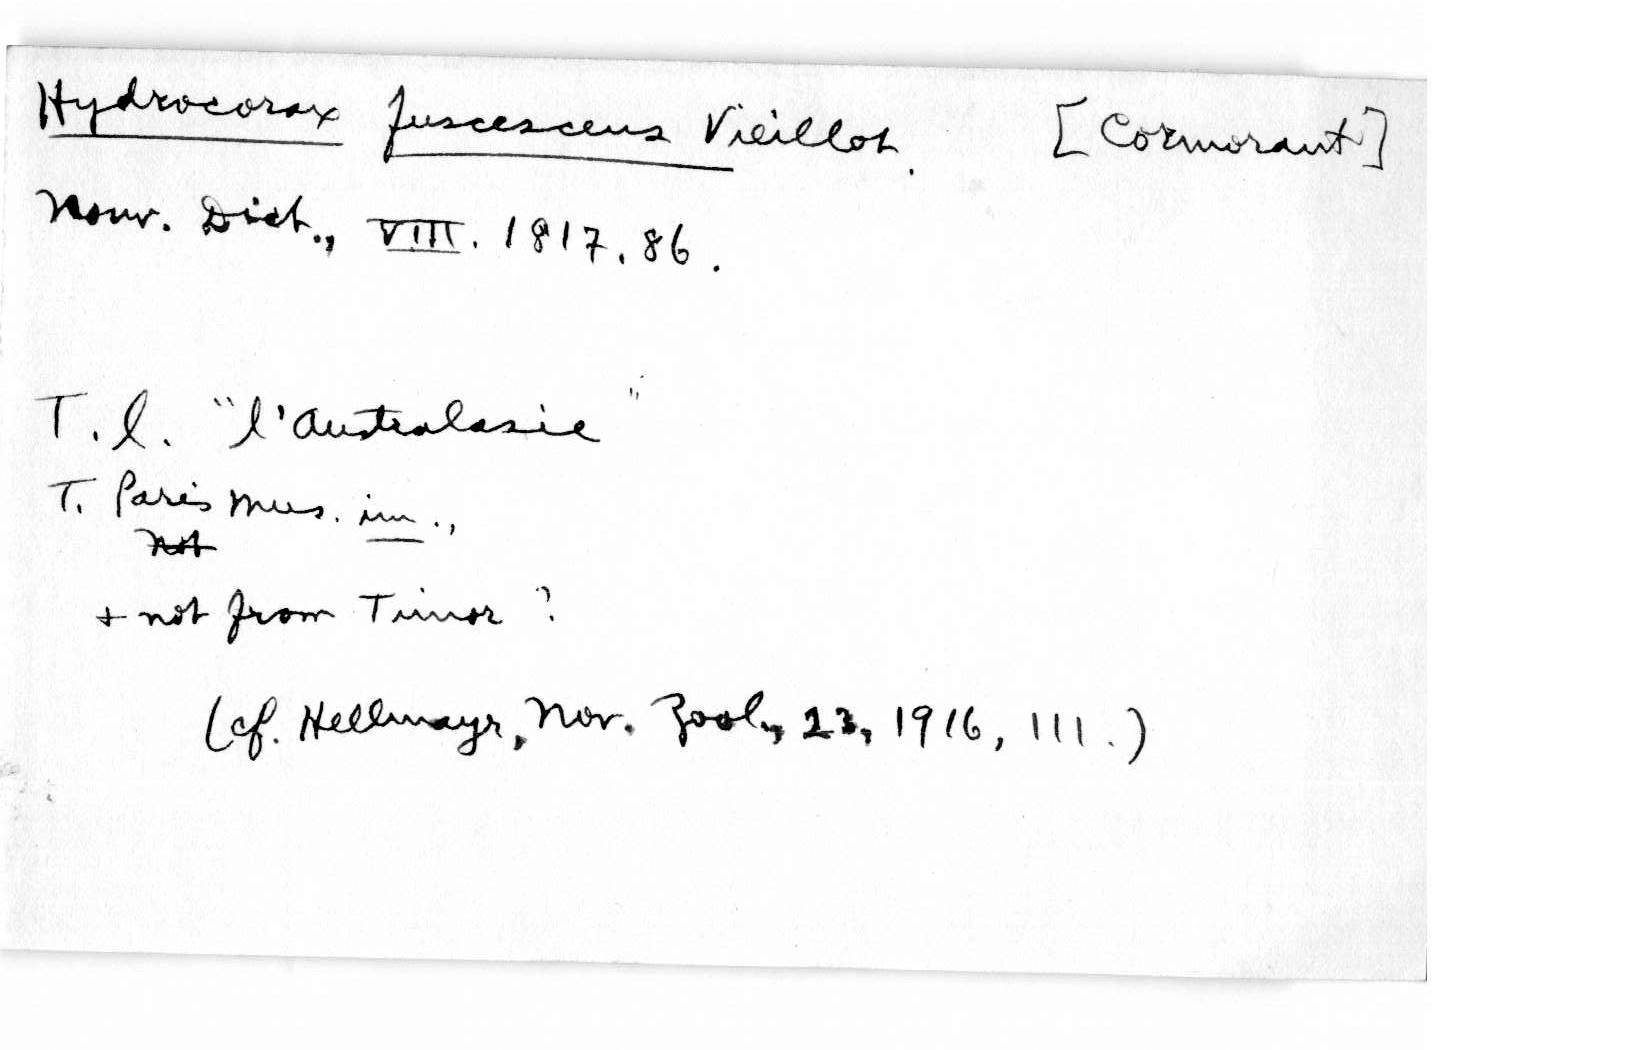 Hydrocorax fuscescens Vieillot. [Cormorant]
Nouv. Dict., VIII. 1817. 86.
T. l. "l'Australasie"
T. Paris Mus. im.,
not
+ not from Timor ?
(cf. Hellmayr, Nov. Zool., 23, 1916, 111.)